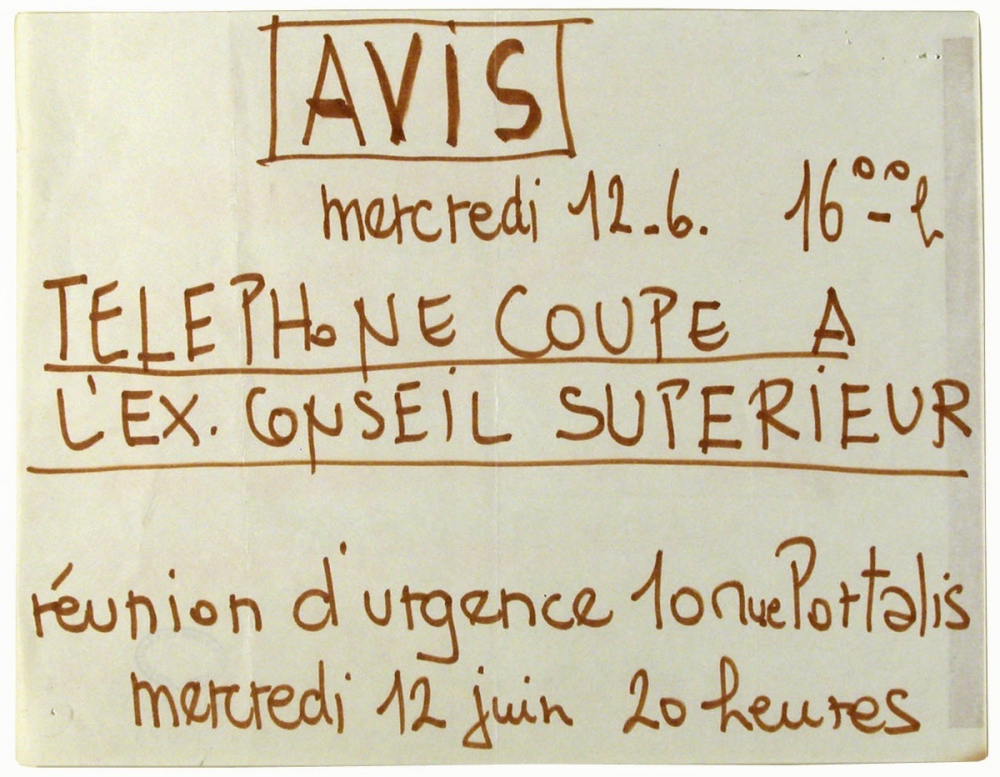 AVIS
mercredi 12-6. 16⁰⁰-h
TELEPHONE COUPE A
L'EX. CONSEIL SUPERIEUR
réunion d'urgence 10 rue Portalis
mercredi 12 juin 20 heures